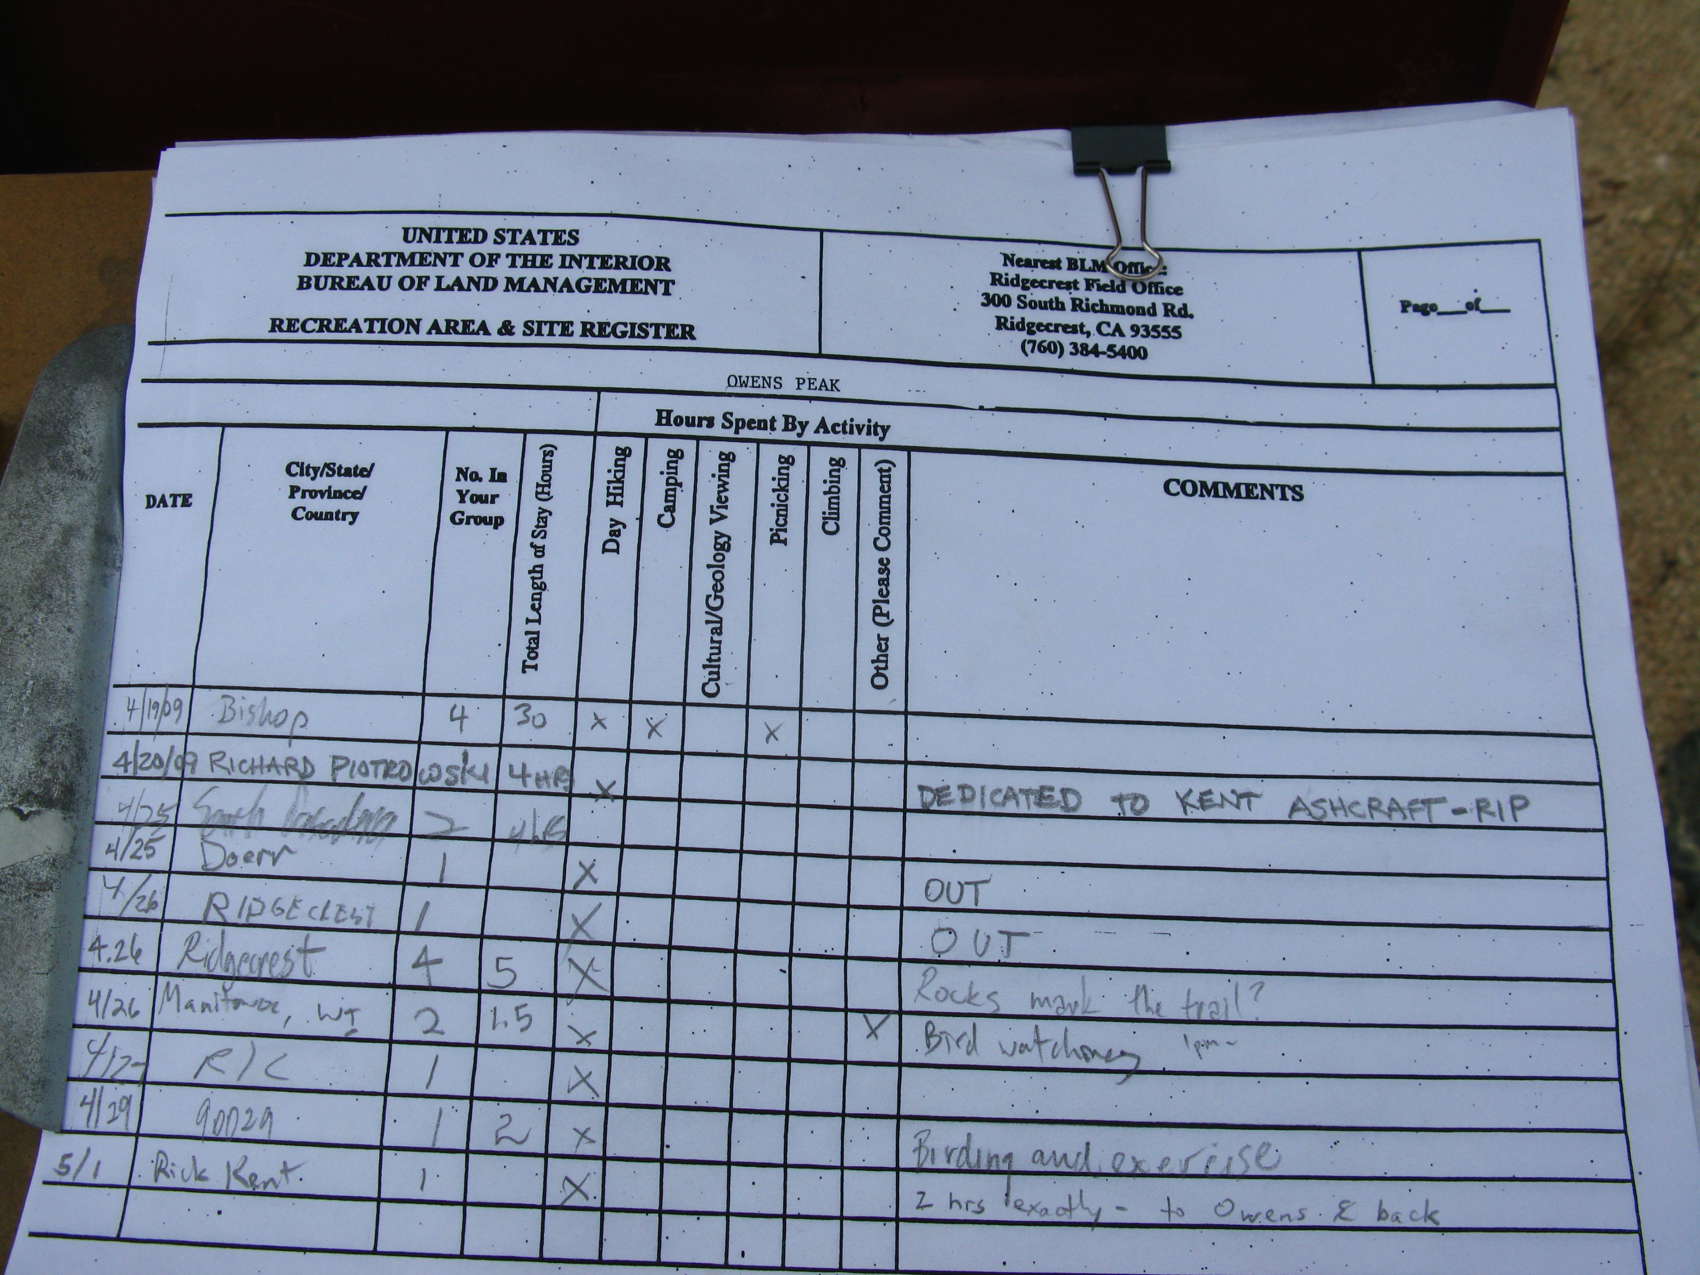 UNITED STATES
DEPARTMENT OF THE INTERIOR
BUREAU OF LAND MANAGEMENT
RECREATION AREA & SITE REGISTER
Nearest BLM Office:
Ridgecrest Field Office
300 South Richmond Rd.
Ridgecrest, CA 93555
(760) 384-5400
Page___of___
OWENS PEAK
Hours Spent By Activity
DATE
City/State/
Province/
Country
No. In
Your
Group
Total Length of Stay (Hours)
Day Hiking
Camping
Cultural/Geology Viewing
Picnicking
Climbing
Other (Please Comment)
COMMENTS
4/19/09 Bishop 4 30 x x x
4/20/09 RICHARD PIOTROWSKI 4 HRS x DEDICATED TO KENT ASHCRAFT - RIP
4/25 South Pasadena 2 4 hrs
4/25 Doerr 1 X OUT
4/26 RIDGECREST 1 X OUT
4.26 Ridgecrest 4 5 X Rocks mark the trail?
4/26 Manitowoc, WI 2 1.5 x X Bird watching 1pm-
4/27 R/C 1 X
4/29 90029 1 2 x Birding and exercise
5/1 Rick Kent 1 X 2 hrs exactly - to Owens & back